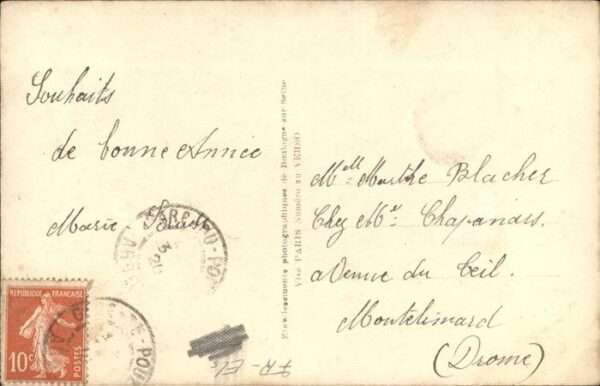 Souhaits
de bonne Année
Marie
Etablissements photographiques de Boulogne sur Seine
Visa PARIS Numéro au VERSO
Mell Marthe Blacher
Chez Mr
avenue du Teil.
Montelimard
(Drome)
RÉPUBLIQUE FRANÇAISE
10c
POSTES
FR-